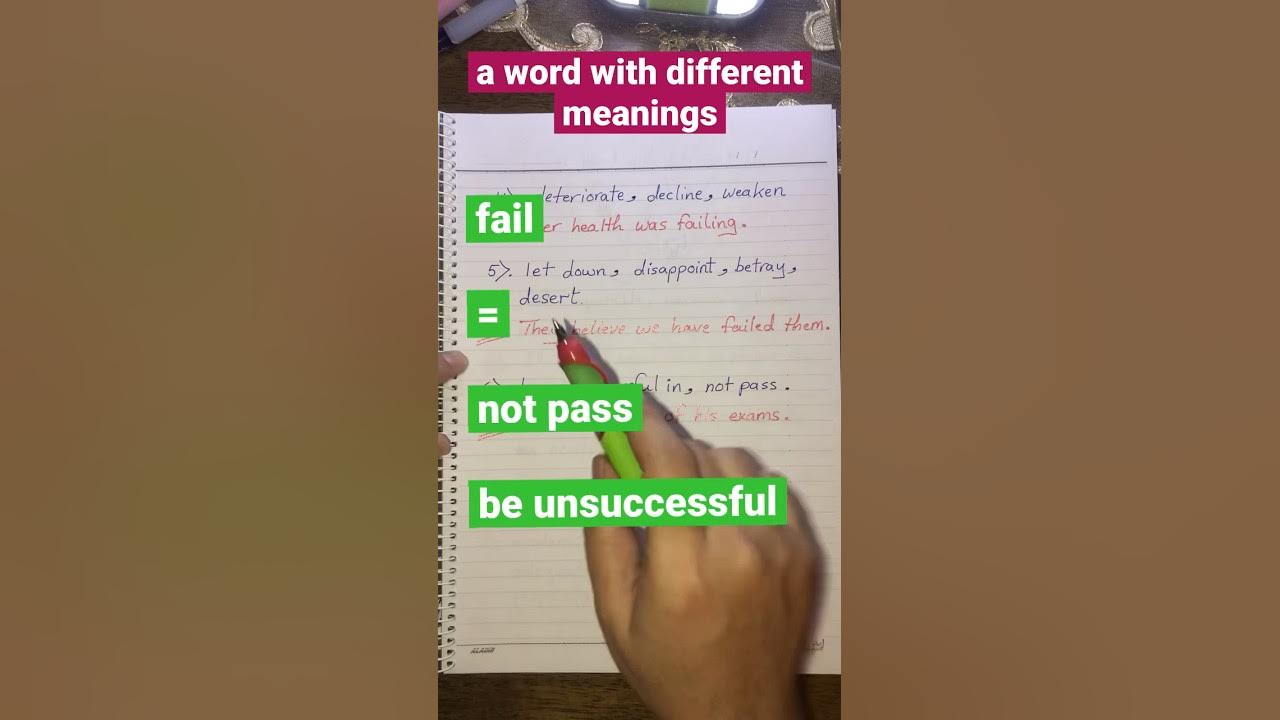 a word with different
meanings
deteriorate, decline, weaken
fail
er health was failing.
5). let down, disappoint, betray,
desert.
=
They believe we have failed them.
ful in, not pass.
not pass
of his exams.
be unsuccessful